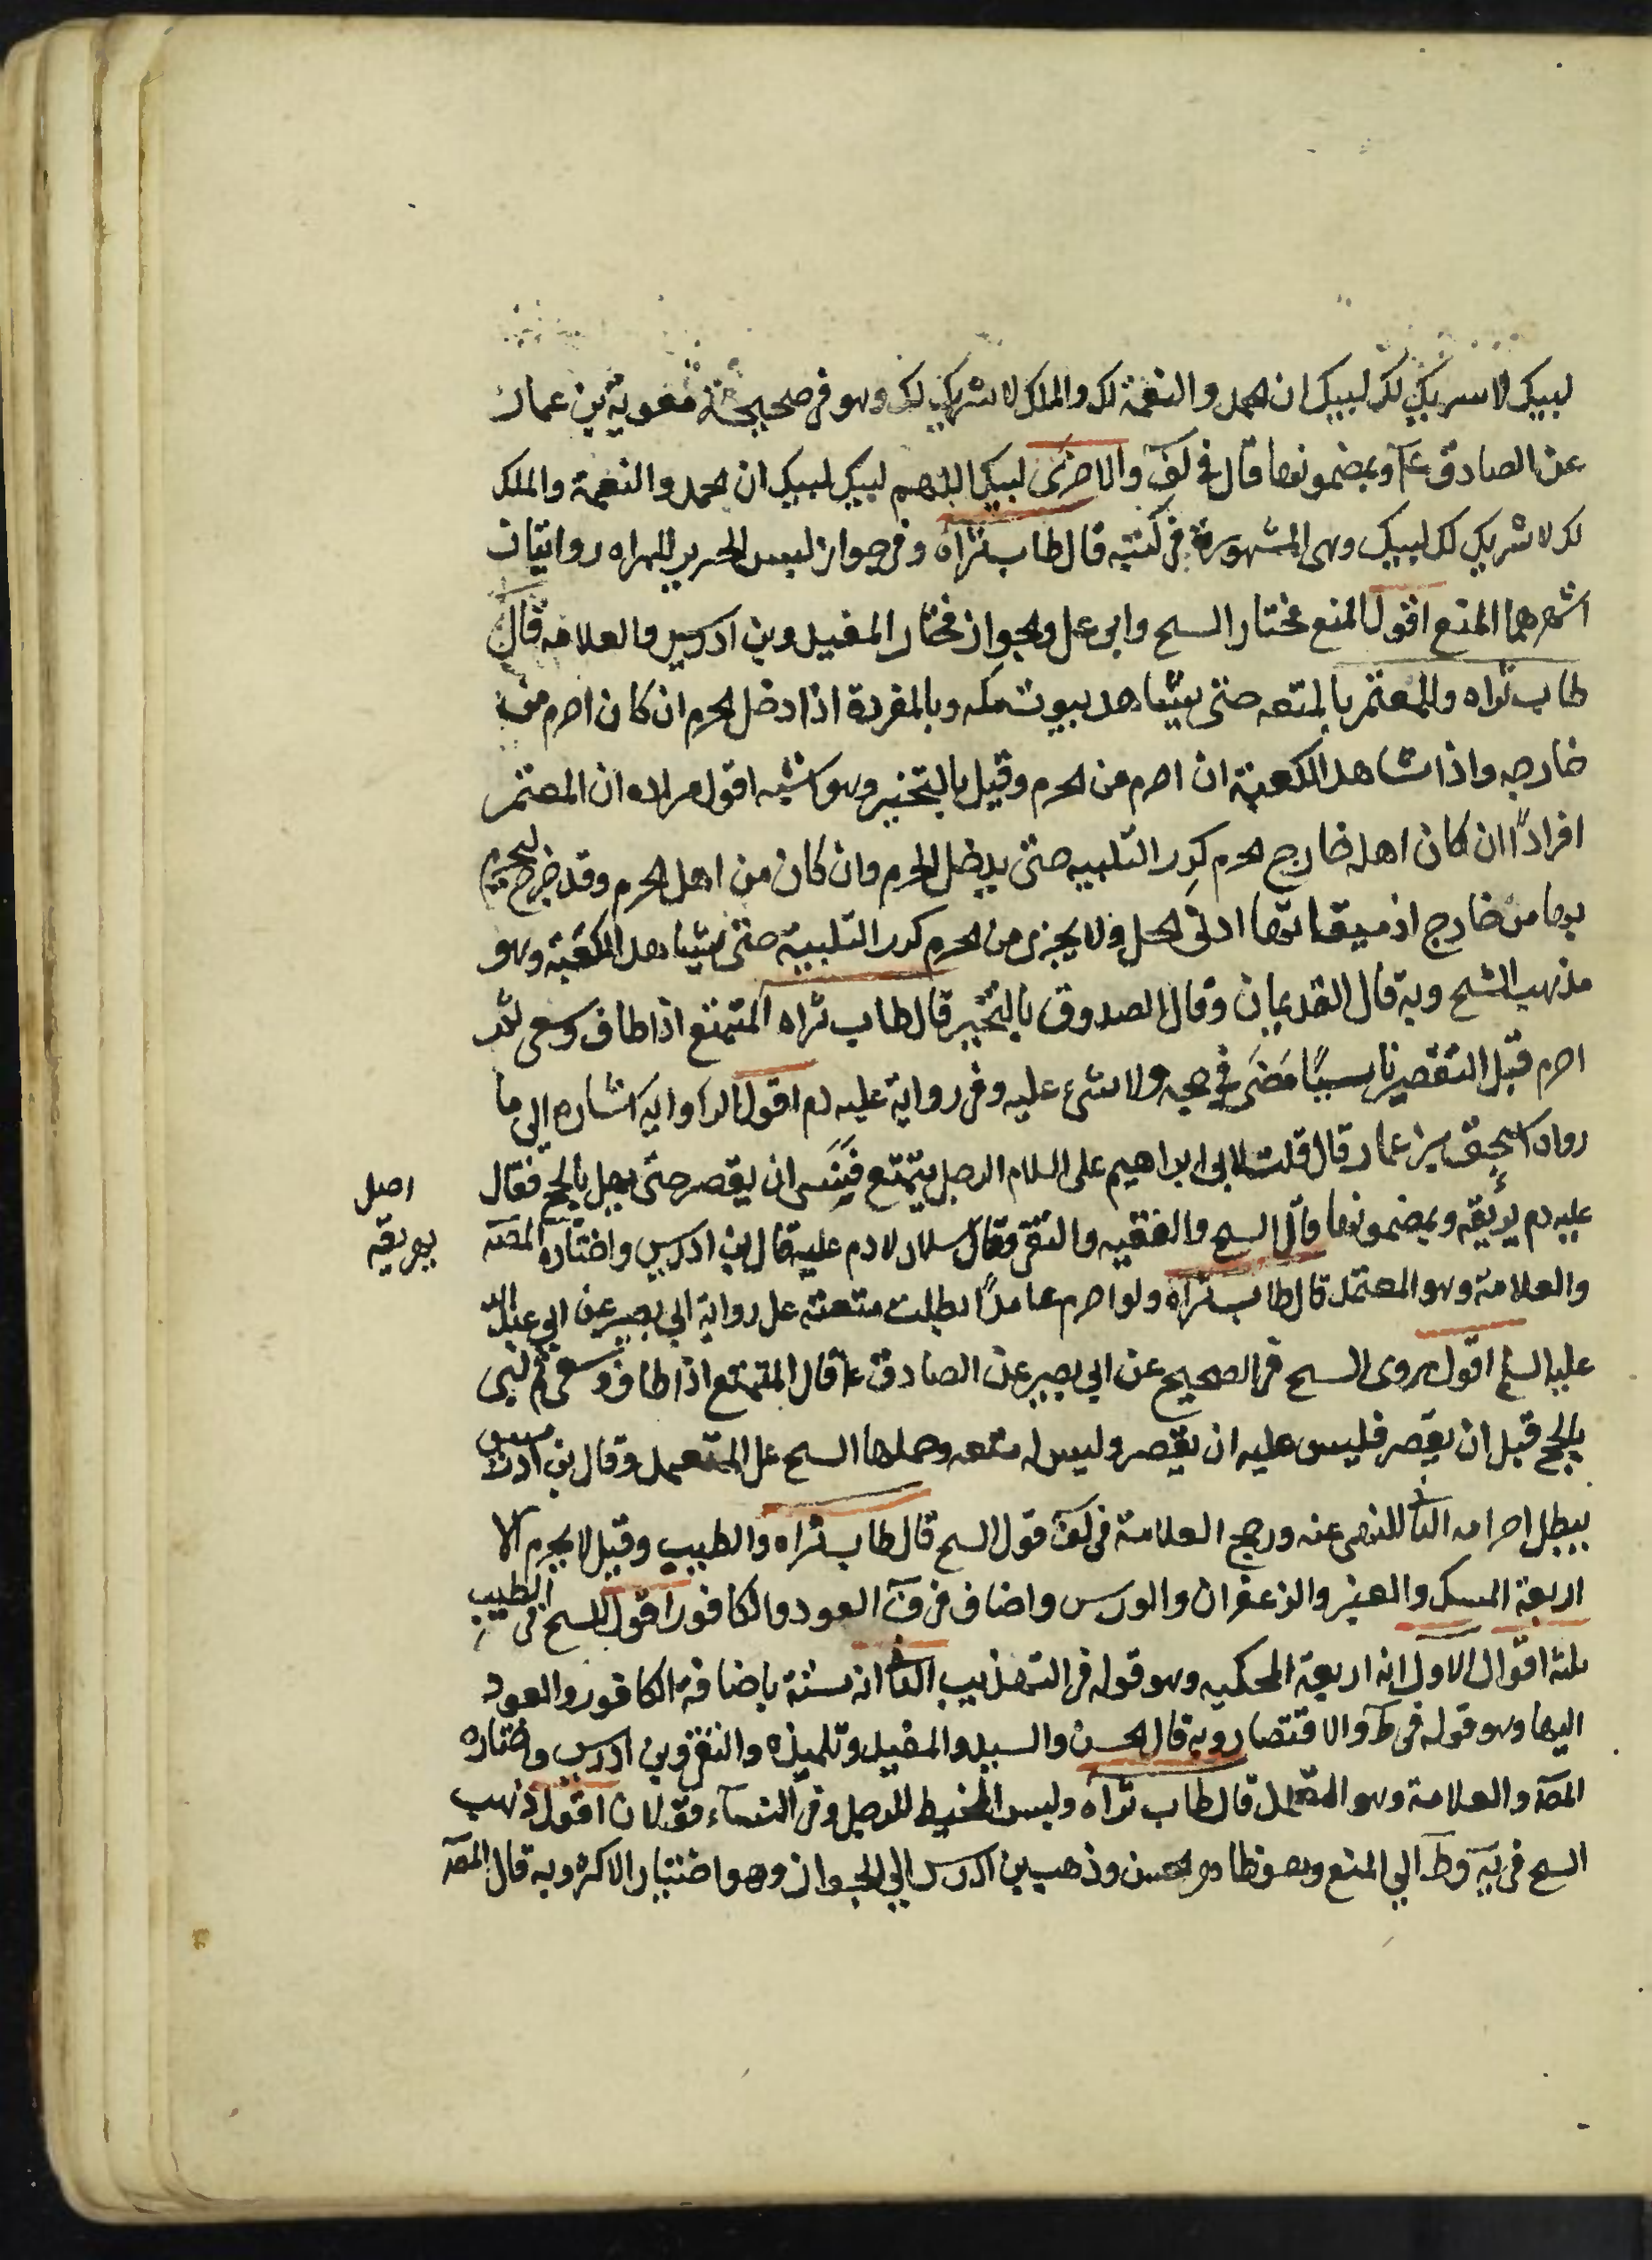 لبيك لا سريك لك لبيك ان الحمد والنعمة لك والملك لا شريك لك وهو في صحيحة معوية بن عمار
عن الصادق ع وبمضمونها قال في لف والاخرى لبيك اللهم لبيك لبيك ان الحمد والنعمة والملك
لك لا شريك لك لبيك وهى المشهورة في كتبه قال طاب ثراه وفي جواز لبس الحرير للمراه روايتان
اشهرهما المنع اقول المنع مختار السح وابى على والجواز مختار المفيد وبن ادريس والعلامه قال
طاب ثراه وللمعتمر بالمتعه حتى يشاهد بيوت مكه وبالمفردة اذا دخل الحرم ان كان احرم من
خارجه واذا شاهد الكعبة ان احرم من الحرم وقيل بالتخير وهو اشبه اقول مراده ان المعتمر
افرادًا ان كان اهله خارج الحرم كرر التلبيه حتى يدخل الحرم وان كان من اهل الحرم وقد خرج ليحرم
بها من خارج اذ ميقاتها ادنى الحل ولا يجزى من الحرم كرر التلبية حتى يشاهد الكعبة وهو
مذهب الشح وبه قال القديمان وقال الصدوق بالتخير قال طاب ثراه المتمتع اذا طاف وسعى ثم
احرم قبل التقصير ناسيًا مضى في حجه ولا شى عليه وفي رواية عليه دم اقول الراوايه اشاره الى ما
رواه اسحق بن عمار قال قلت لابى ابراهيم على السلام الرجل يتمتع فينسى ان يقصر حتى يهل بالحج فقال
عليه دم يريقه وبمضمونها قال السح والفقيه والتقى وقال سلار لا دم عليه قال بن ادريس واختاره المصه
اصل
يهريقه
والعلامة وهو المعتمد قال طاب ثراه ولو احرم عامدًا بطلت متعته على رواية ابي بصير عن ابي عبد الله
عليه السلم اقول روى السح في الصحيح عن ابي بصير عن الصادق ع قال المتمتع اذا طاف وسعى ثم لبى
بالحج قبل ان يقصر فليس عليه ان يقصر وليس له متعه وحملها السح على المتعمد وقال بن ادريس
يبطل احرامه الثا للنهى عنه ورجح العلامة في لف قول السح قال طاب ثراه والطيب وقيل لا يحرم الا
اربعة المسك والعنبر والزعفران والورس واضاف في ف العود والكافور اقول للسح في الطيب
ثلثة اقوال الاول انه اربعة المحكيه وهو قوله في التهذيب الثا انه ستة باضافة الكافور والعود
اليها وهو قوله في ط والاقتصار وبه قال الحسن والسيد والمفيد وتلميذه والتقى وبن ادريس واختاره
المصه والعلامة وهو المعتمد قال طاب ثراه ولبس المخيط للرجل وفي النساء قولان اقول ذهب
السح في يه وط الي المنع وهو ظاهر الحسن وذهب بن ادريس الي الجواز وهو اختيار الاكثر وبه قال المصه